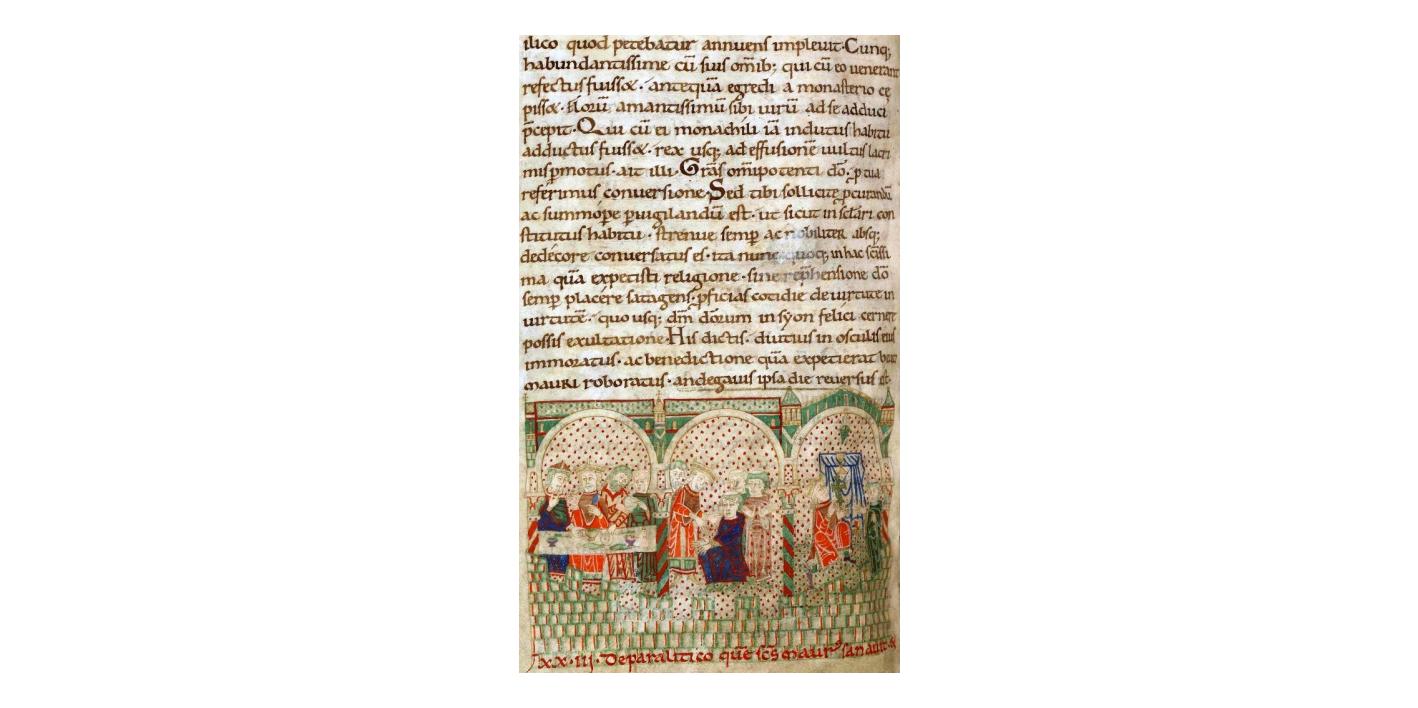 ilico quod petebatur annuens implevit· Cunq;
habundantissime cū suis om̄ib; qui cū eo venerant
refectus fuiss&· anteq̄uā egredi a monasterio ce
piss&· florū amantissimū sibi uirū ad se adduci
p̄cepit· Qui cū ei monachili iā indutus habitu
adductus fuiss&· rex usq; ad effusionē uultus lacri
mis p̄motus· ait illi· Gr̄as om̄ipotenti dō· p tua
referimus conuersione· Sed tibi sollicite pcurandū
ac summope puigilandū est· ut sicut in sclāri con
stitutus habitu· strenue semp ac nobiliter absq;
dedecore conuersatus es· ita nunc quoq; in hac sc̄issi
ma quā expetisti religione· sine rep̄hensione dō
semp placere satagens· pficias cotidie de uirtute in
uirtutē· quo usq; dm̄ dōrum in syon felici cernere
possis exultatione· His dictis· diutius in osculis eius
immoratus· ac benedictione quā expetierat beati
mauri roboratus· andegauis ipsa die reuersus est·
XX·III· De paralitico quē sc̄s maurꝰ sanauit·